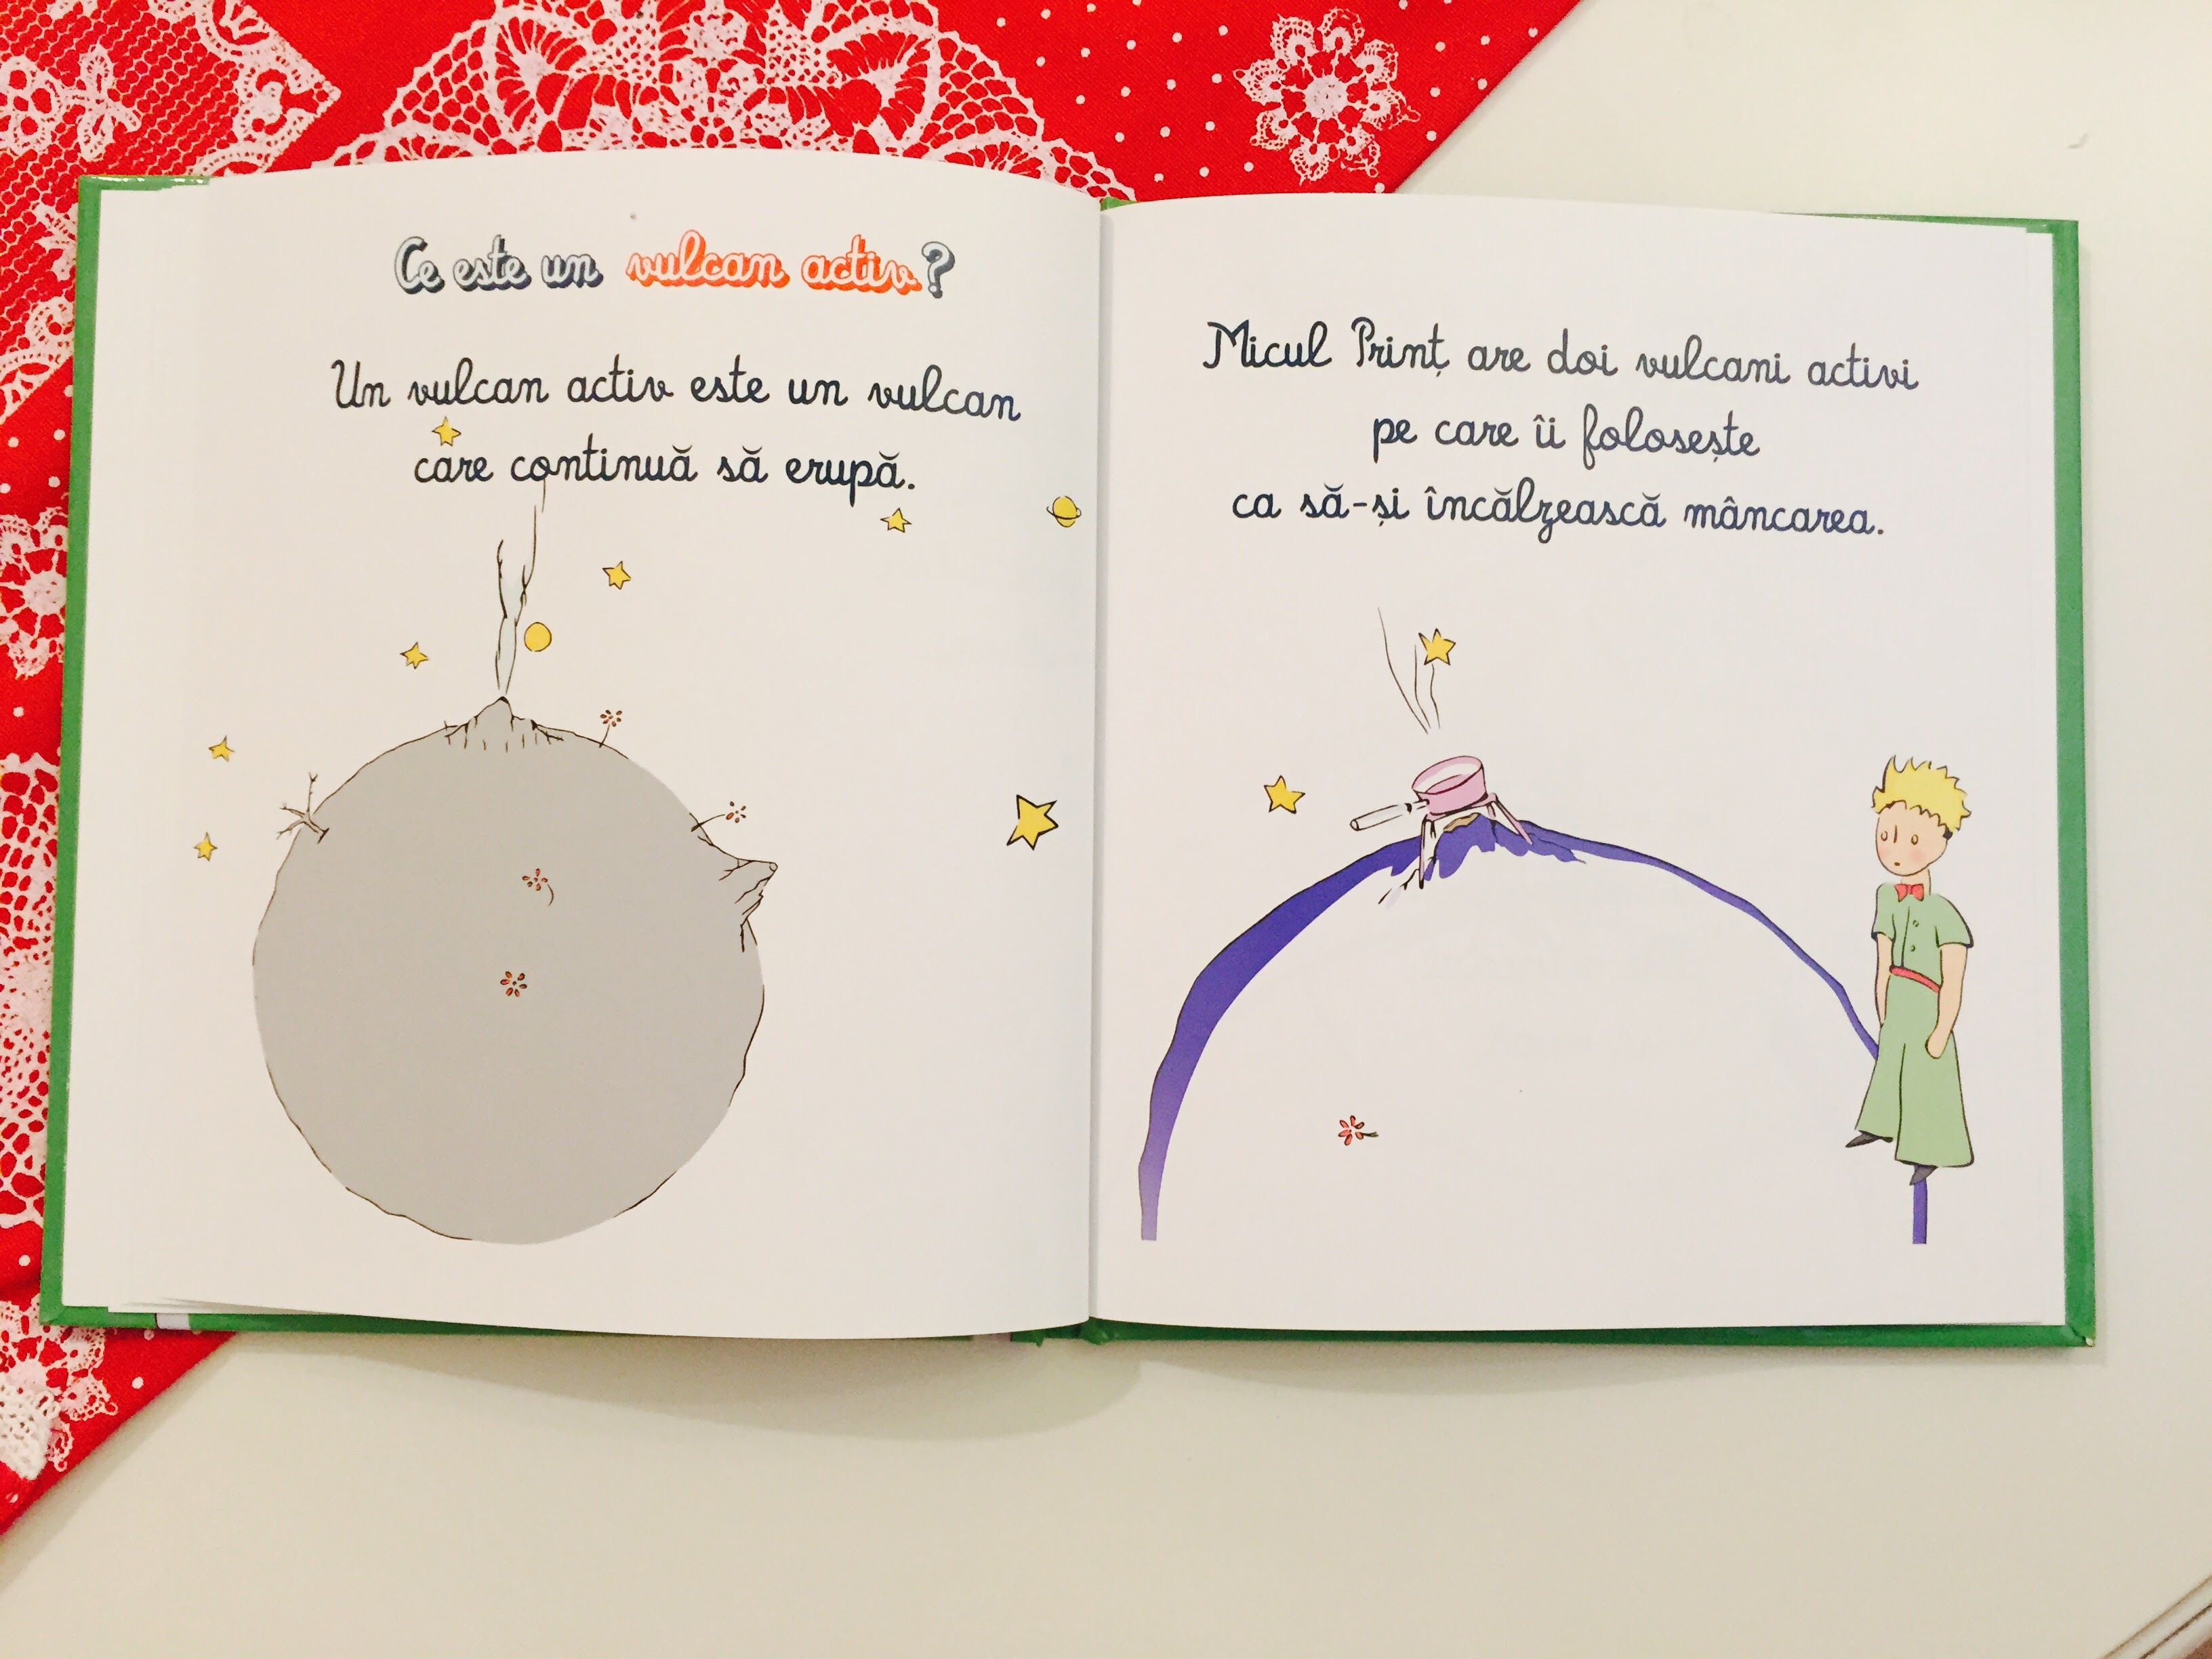 Ce este un vulcan activ?
Un vulcan activ este un vulcan
care continuă să erupă.
Micul Prinț are doi vulcani activi
pe care îi folosește
ca să-și încălzească mâncarea.